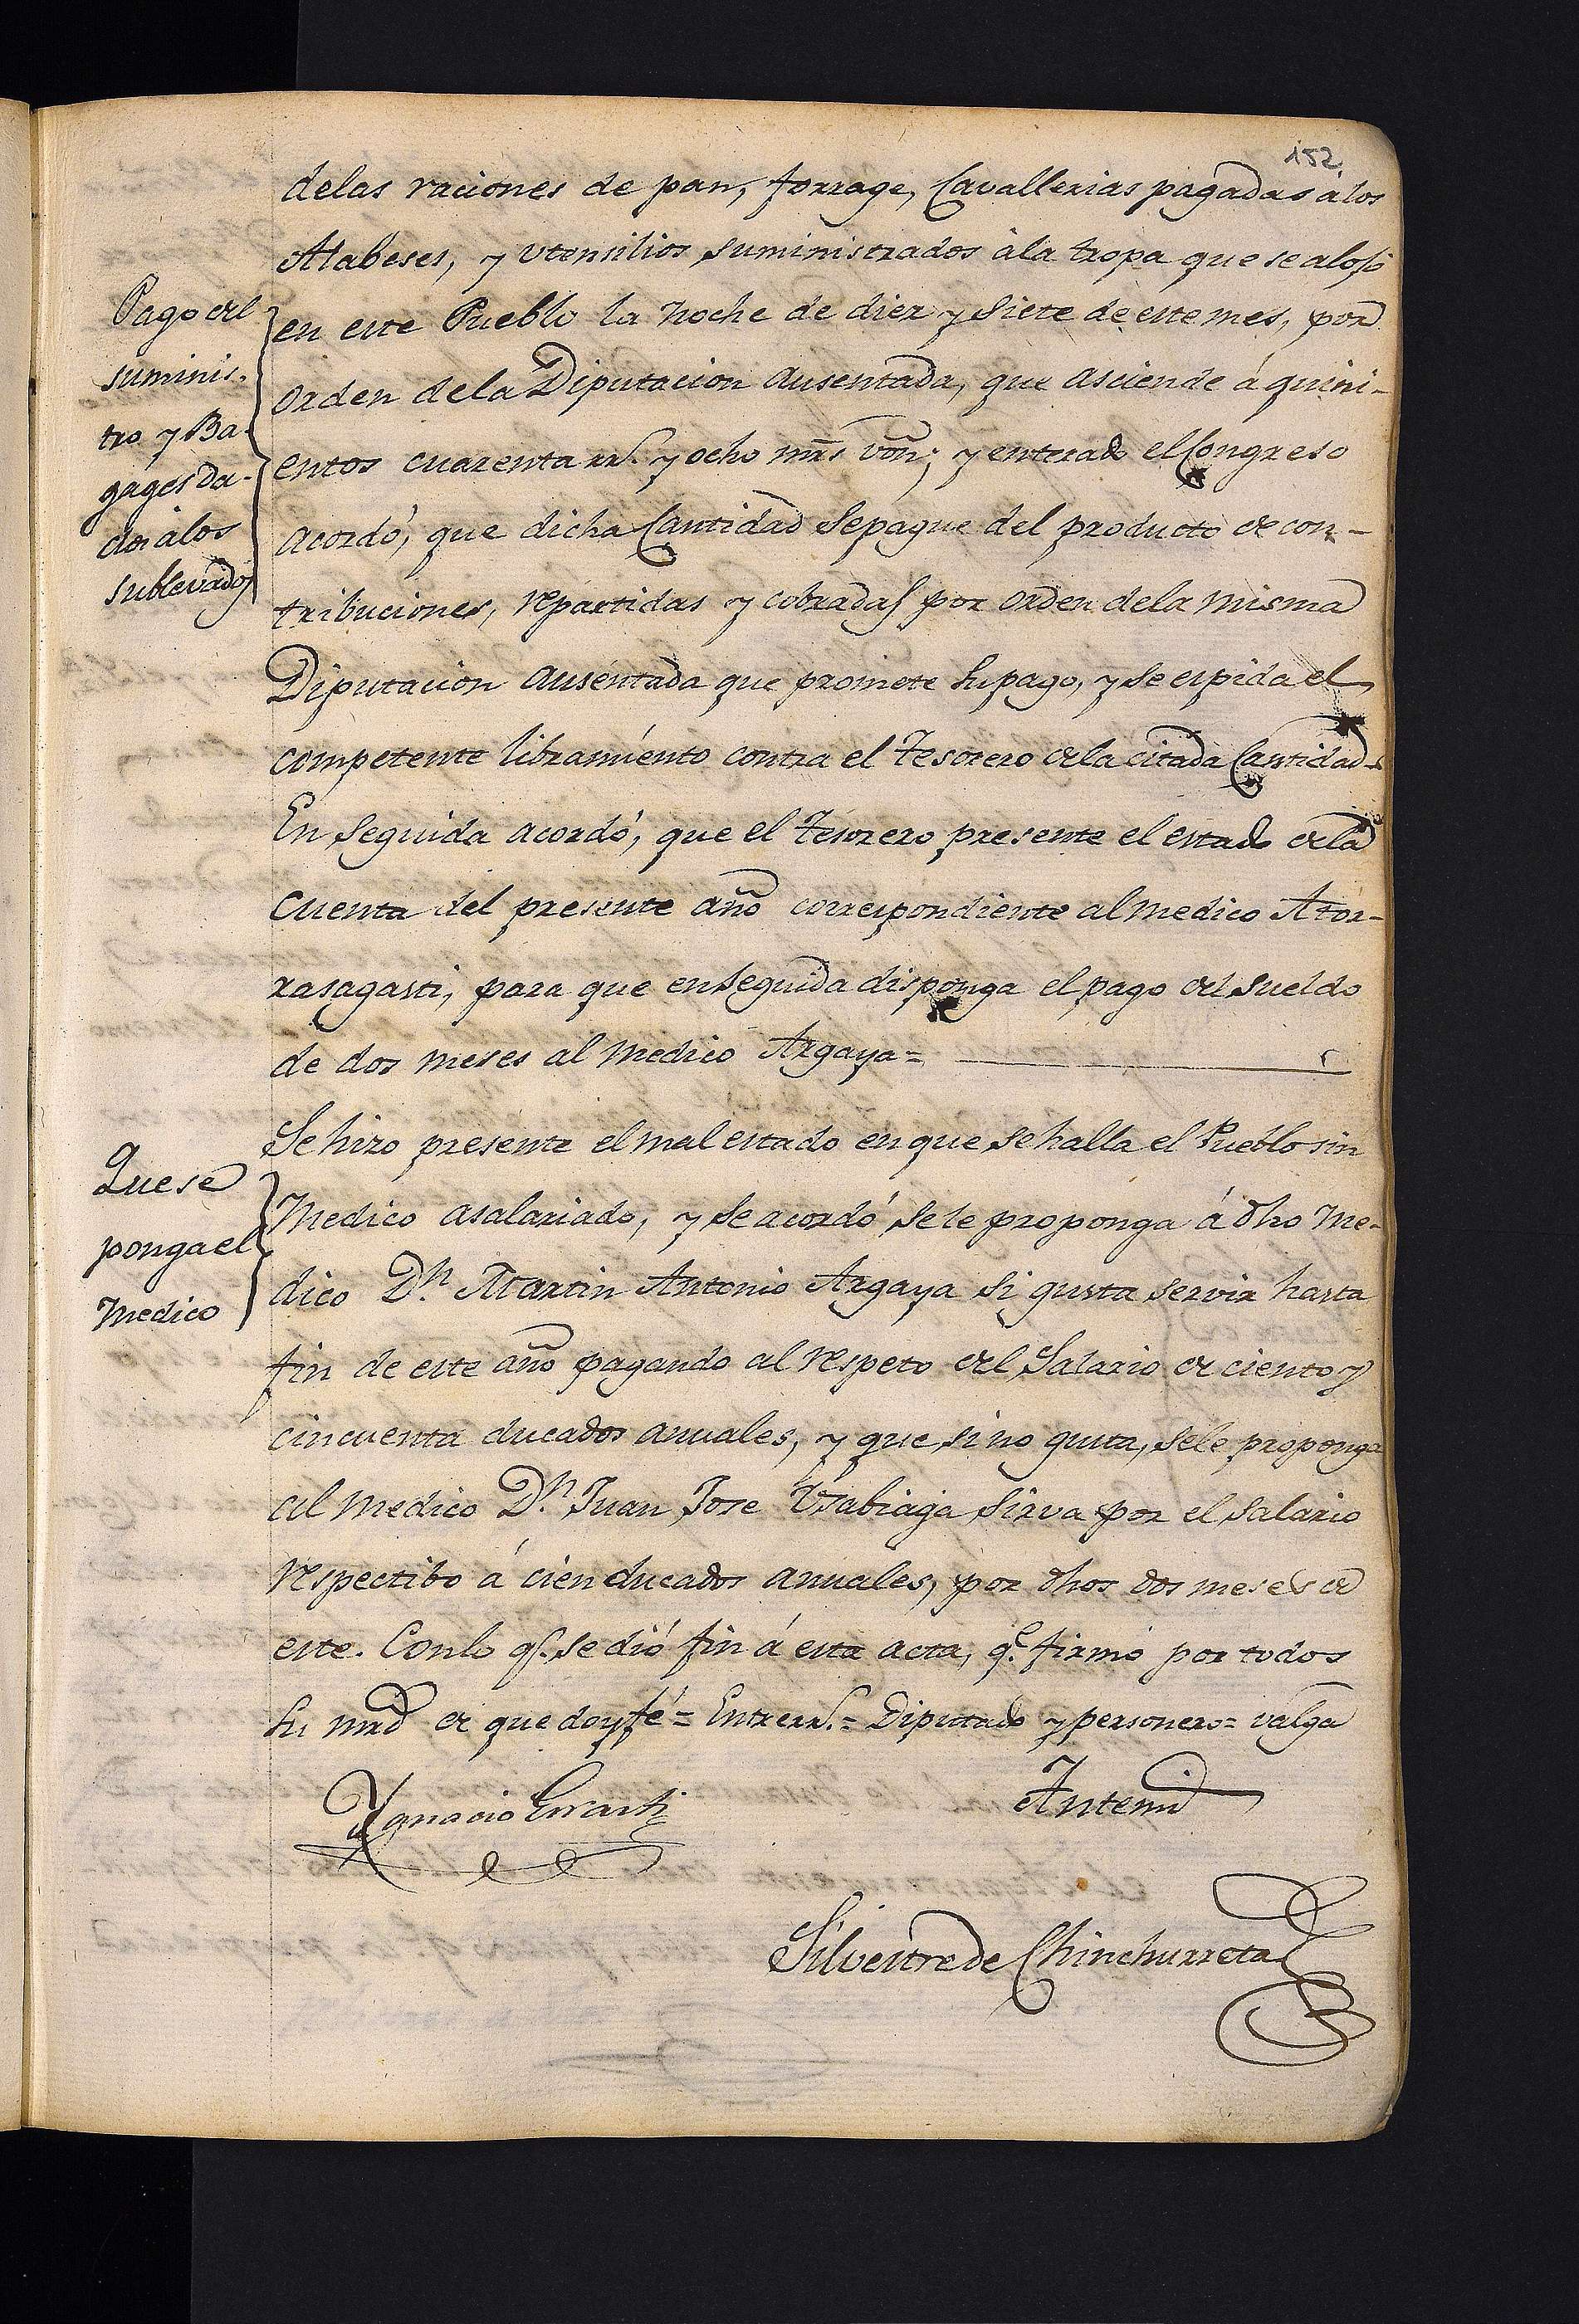 152
delas raciones de pan, forrage, Cavallerias pagadas alos
Alabeses, y utensilios suministrados àla tropa que se alojó
en este Pueblo la noche de diez y siete de este mes, por
orden dela Diputacion ausentada, que asciende á quini-
entos cuarenta rr.s y ocho mrs von; y enterado el Congreso
acordó, que dicha Cantidad se pague del producto de con-
tribuciones, repartidas y cobradas por orden dela misma
Diputacion ausentada que promete su pago, y se espida el
competente libramiento contra el Tesorero dela citada Cantidad.
En seguida acordó, que el Tesorero presente el estado dela
cuenta del presente año correspondiente al medico Ator-
rasagasti, para que enseguida disponga el pago del sueldo
de dos meses al medico Argaya=
Se hizo presente el mal estado en que se halla el Pueblo sin
Medico asalariado, y se acordó se le proponga á dho Me-
dico D.n Martin Antonio Argaya si gusta servir hasta
fin de este año pagando al respeto del Salario de ciento y
cincuenta ducados anuales, y que si no gusta, sele proponga
al medico D.n Juan Jose Usabiaga sirva por el salario
respectibo á cien ducados anuales, por dhos dos meses de
este. Conlo q.e se dió fin á esta acta, q.e firmó por todos
su mrd de que doy fé= Entrerr.s= Diputado y personero= valga
Ygnacio Errasti
Antemi
Silvestre de Chinchurreta
Pago del
suminis-
tro y Ba-
gages da-
dos àlos
sublevados
Quese
ponga el
Medico